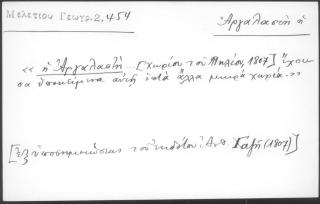 Μελετίου Γεωγρ. 2, 454
Ἀργαλαστὴ ἡ
« ἡ Ἀργαλαστὴ... [χωρίον τοῦ Πηλίου, 1807] ἔχου-
σα ὑποκείμενα αὐτῇ ἑπτὰ ἄλλα μικρὰ χωρία. »
[Ἐξ ὑποσημειώσεως τοῦ ἐκδότου Ἀνθ. Γαζῆ (1807)]